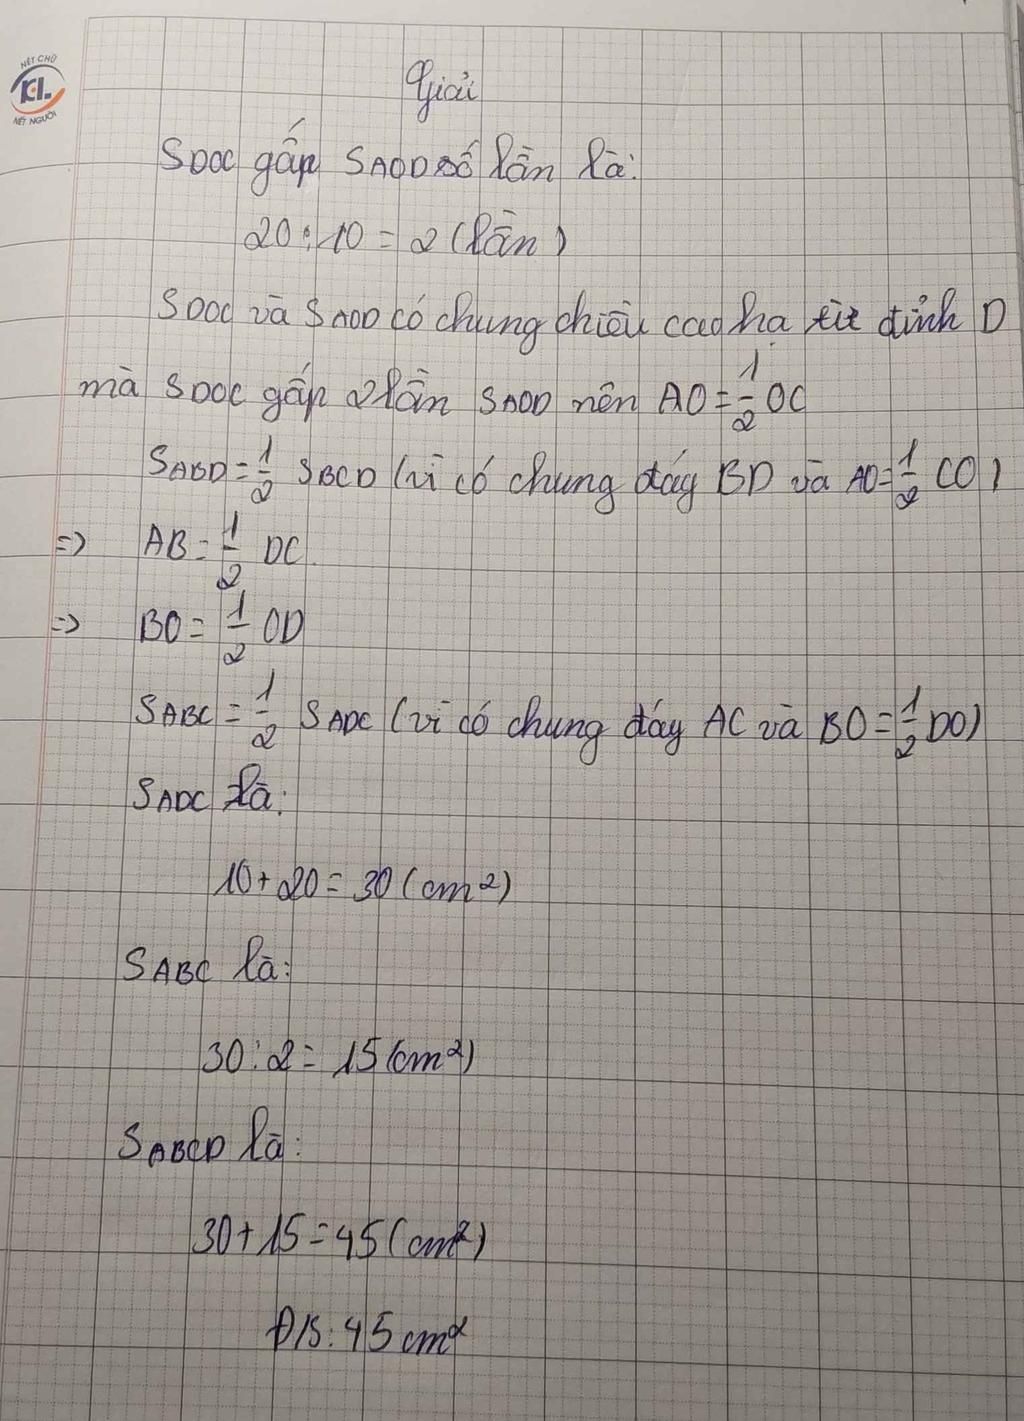 NÉT CHỮ
KL.
NẾT NGƯỜI
Giải
SDOC gấp SAOD số lần là:
20 : 10 = 2 (lần)
SDOC và SAOD có chung chiều cao hạ từ đỉnh D
mà SDOC gấp 2 lần SAOD nên AO = 1/2 OC
SABD = 1/2 SBCD (vì có chung đáy BD và AO = 1/2 CO)
=> AB = 1/2 DC.
=> BO = 1/2 OD
SABC = 1/2 SADC (vì có chung đáy AC và BO = 1/2 DO)
SADC là:
10 + 20 = 30 (cm²)
SABC là:
30 : 2 = 15 (cm²)
SABCD là:
30 + 15 = 45 (cm²)
Đ/S: 45 cm²